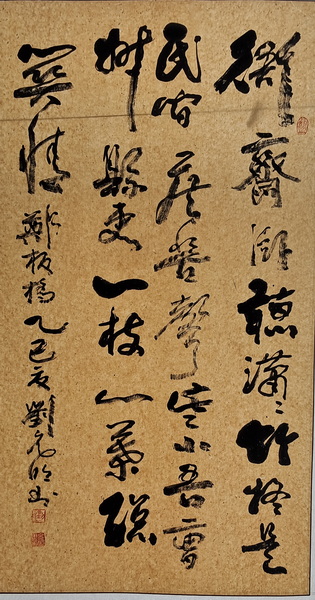 衙齋卧聽瀟瀟竹疑是
民間疾苦聲些小吾曹
州縣吏一枝一葉總
關情 鄭板橋 乙巳夏 劉 书